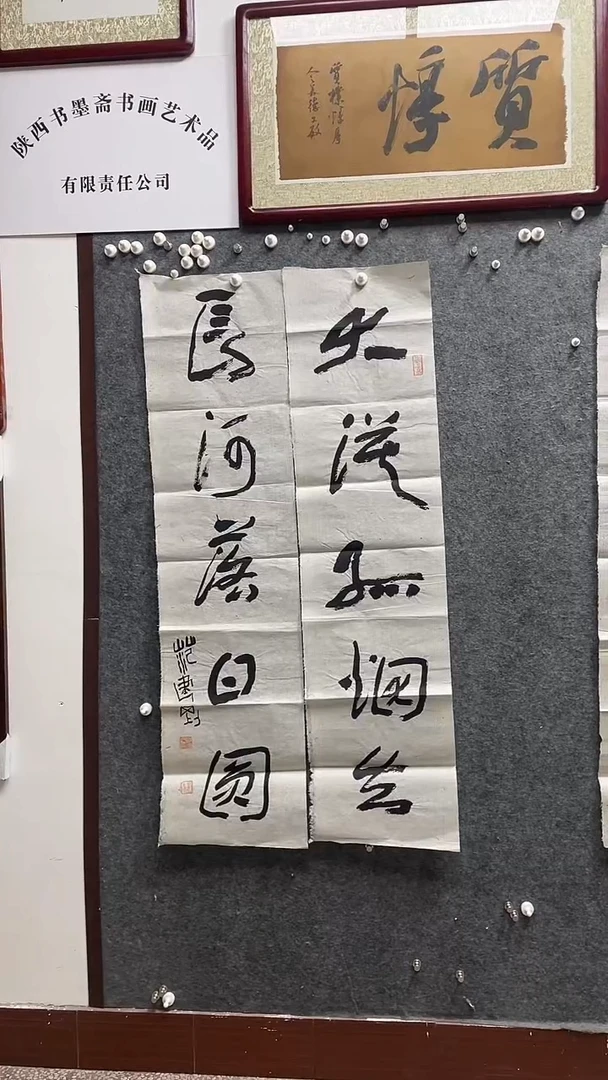 陕西书墨斋书画艺术品
有限责任公司
質惇
大漠孤烟直
長河落日圆